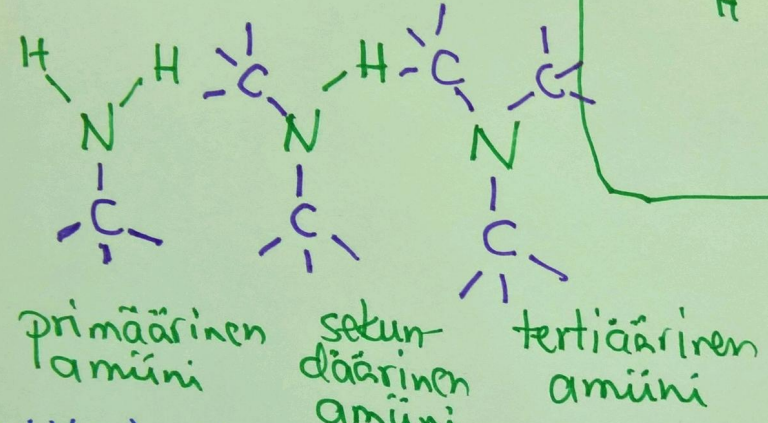 H
H
H
C
C
C
H
N
N
N
C
C
C
primäärinen
amiini
sekun-
däärinen
amiini
tertiäärinen
amiini